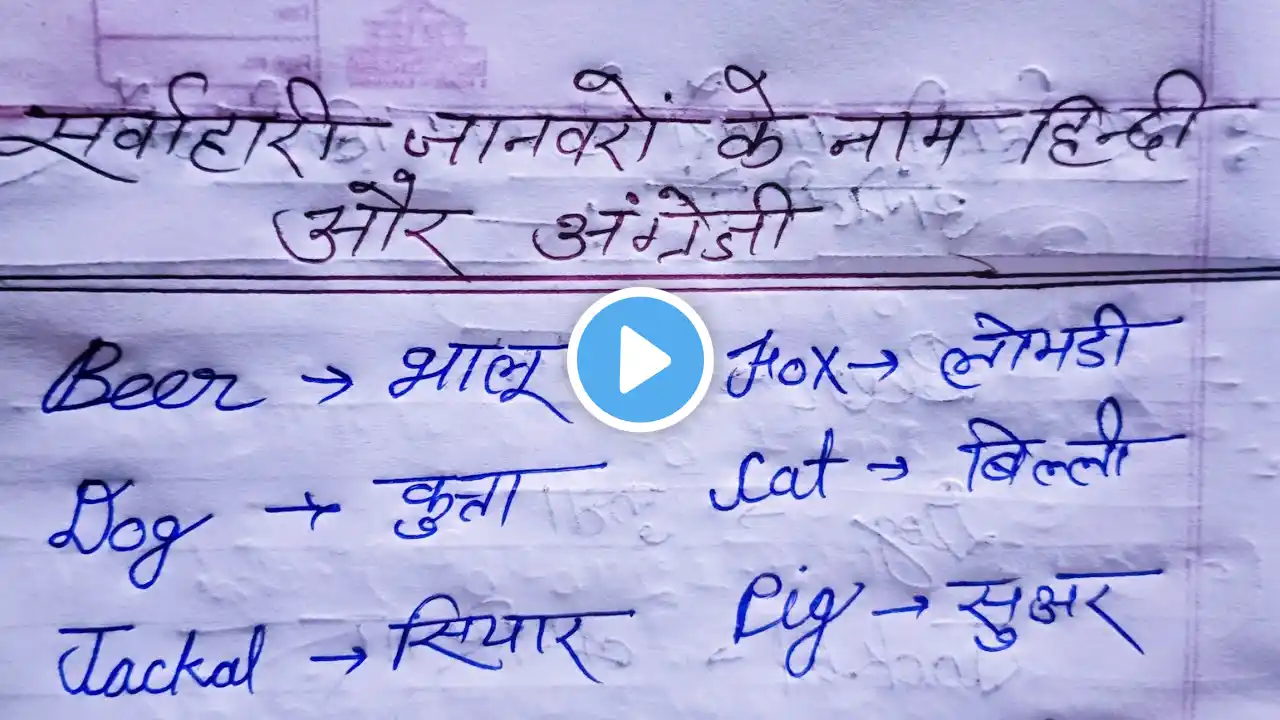 सर्वाहारी जानवरों के नाम हिन्दी
और अंग्रेजी
Beer → भालू Fox → लोमडी
Dog → कुत्ता Cat → बिल्ली
Jackal → सियार Pig → सुअर